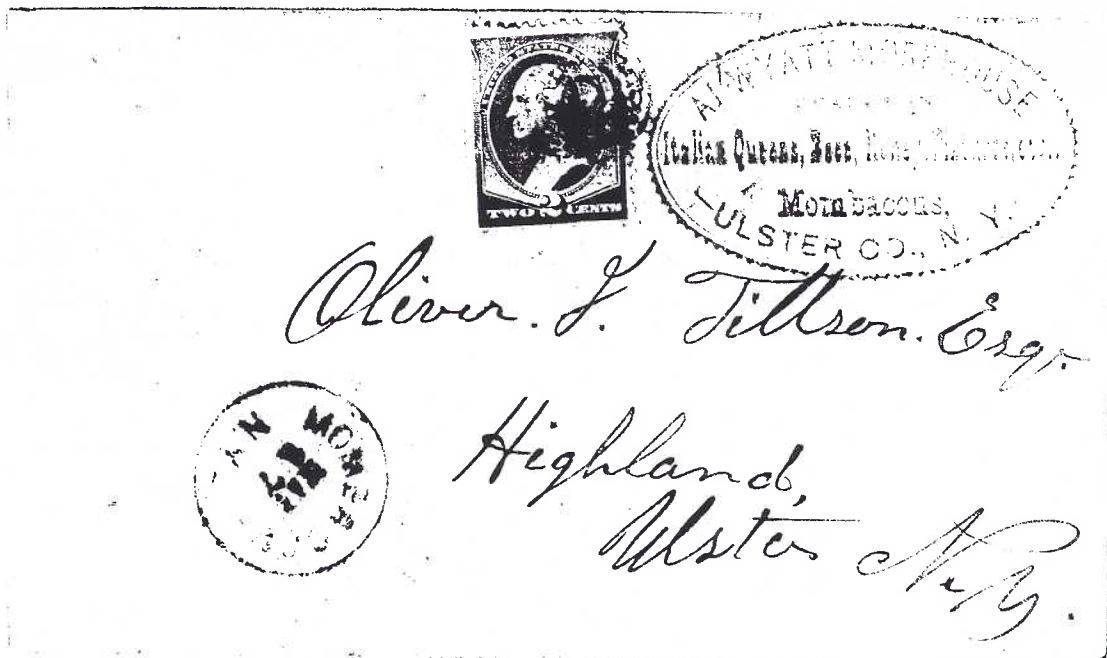 UNITED STATES
TWO 2 CENTS
WYATT MOREHOUSE
Italian Queens, Bees, Honey,
Mombaccus,
ULSTER CO., N. Y.
Oliver. J. Tillson. Esqr.
MOMBA
Highland,
Ulster N. Y.